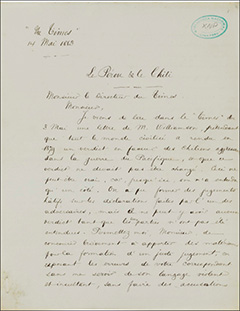 "The Times"
Mai 1883
Le Pérou & le Chili
Monsieur le Directeur du Times
Monsieur,
Je viens de lire dans le Times de
3 Mai une lettre de M. Williamson prétendant
que tout le monde civilisé a rendu en
1879 un verdict en faveur des Chiliens
dans la guerre du Pacifique, & que ce
verdict ne devait pas être changé. Ceci ne
peut être vrai, car jusqu'ici on n'a entendu
qu'un côté. On a pu former des jugements
hâtifs sur les déclarations faites par l'un des
adversaires, mais il ne peut y avoir aucun
verdict tant que les parties n'ont pas été
entendues. Permettez-moi Monsieur de
commencer brièvement à apporter des matériaux
pour la formation d'un juste jugement, en
exposant les erreurs de votre correspondant
sans me servir de son langage violent
et insultant, sans faire des accusations